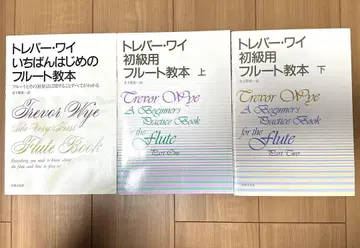 トレバー・ワイ
いちばんはじめの
フルート教本
フルートとその奏法に関することすべてがわかる
Trevor Wye
The Very First
Flute Book
Everything you need to know about
the flute and how to play it
トレバー・ワイ
初級用
フルート教本 上
Trevor Wye
A Beginner's
Practice Book
for the
Flute
Part One
トレバー・ワイ
初級用
フルート教本 下
Trevor Wye
A Beginner's
Practice Book
for the
Flute
Part Two